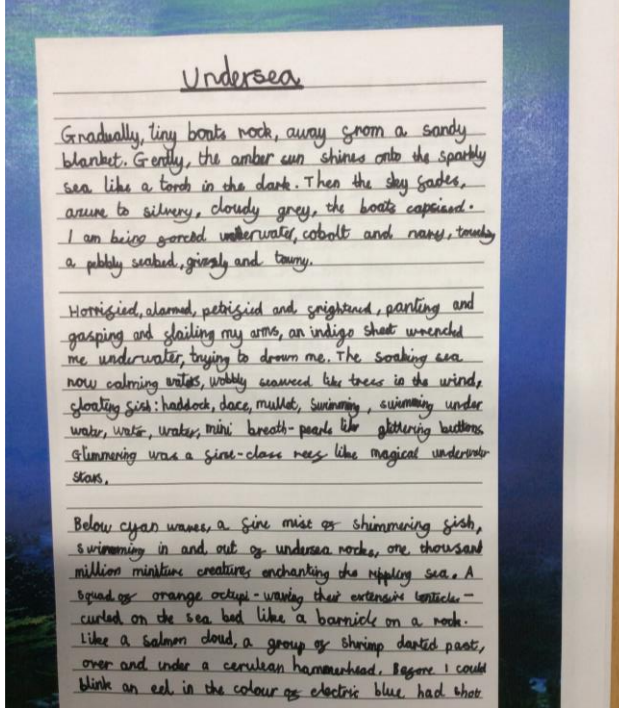 Undersea
Gradually, tiny boats rock, away from a sandy
blanket. Gently, the amber sun shines onto the sparkly
sea like a torch in the dark. Then the sky fades,
azure to silvery, cloudy grey, the boats capsized.
I am being forced underwater, cobolt and navy,
a pebbly seabed, grizzly and tawny.
Horrified, alarmed, petrified and frightened, panting and
gasping and flailing my arms, an indigo sheet wrenched
me underwater, trying to drown me. The soaking sea
now calming waters, wobbly seaweed like trees in the wind,
floating fish: haddock, dace, mullet, swimming, swimming under
water, water, mini breath-pearls like glittering buttons.
Glimmering was a first-class reef like magical underwater
stars.
Below cyan waves, a fine mist of shimmering fish,
swimming in and out of undersea rocks, one thousand
million miniture creatures enchanting the rippling sea. A
squad of orange octupi - waving their extensive tentacles -
curled on the sea bed like a barnicle on a rock.
Like a salmon cloud, a group of shrimp darted past,
over and under a cerulean hammerhead. Before I could
blink an eel in the colour of electric blue had shot